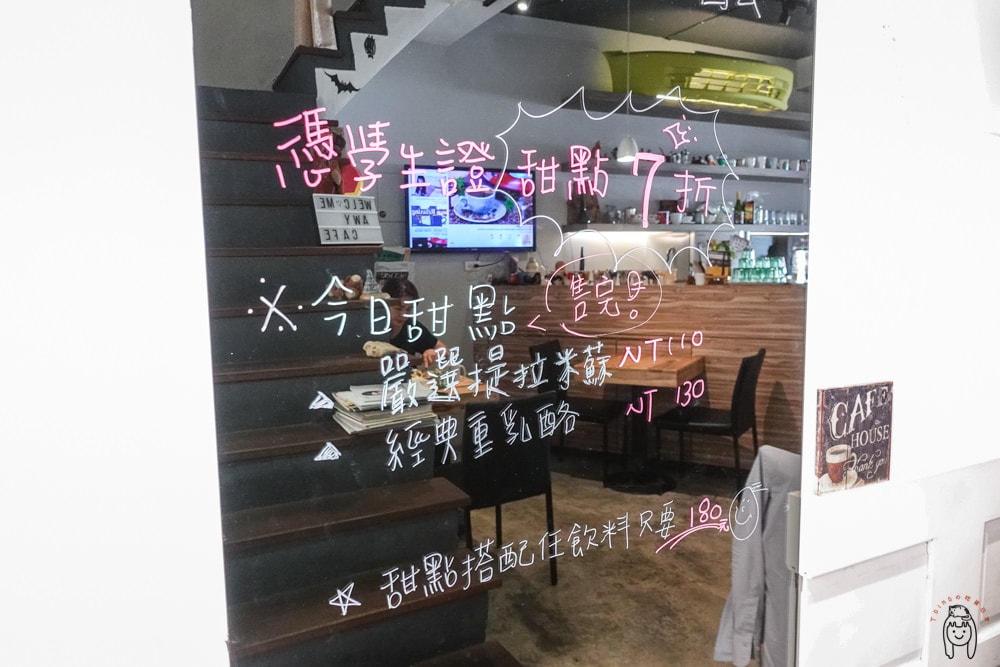 憑學生證 甜點7折
WELCOME
AWY
CAFE
※今日甜點 售完!
嚴選提拉米蘇 NT110
經典重乳酪 NT 130
甜點搭配任飲料只要180元
CAFE
HOUSE
Thank you